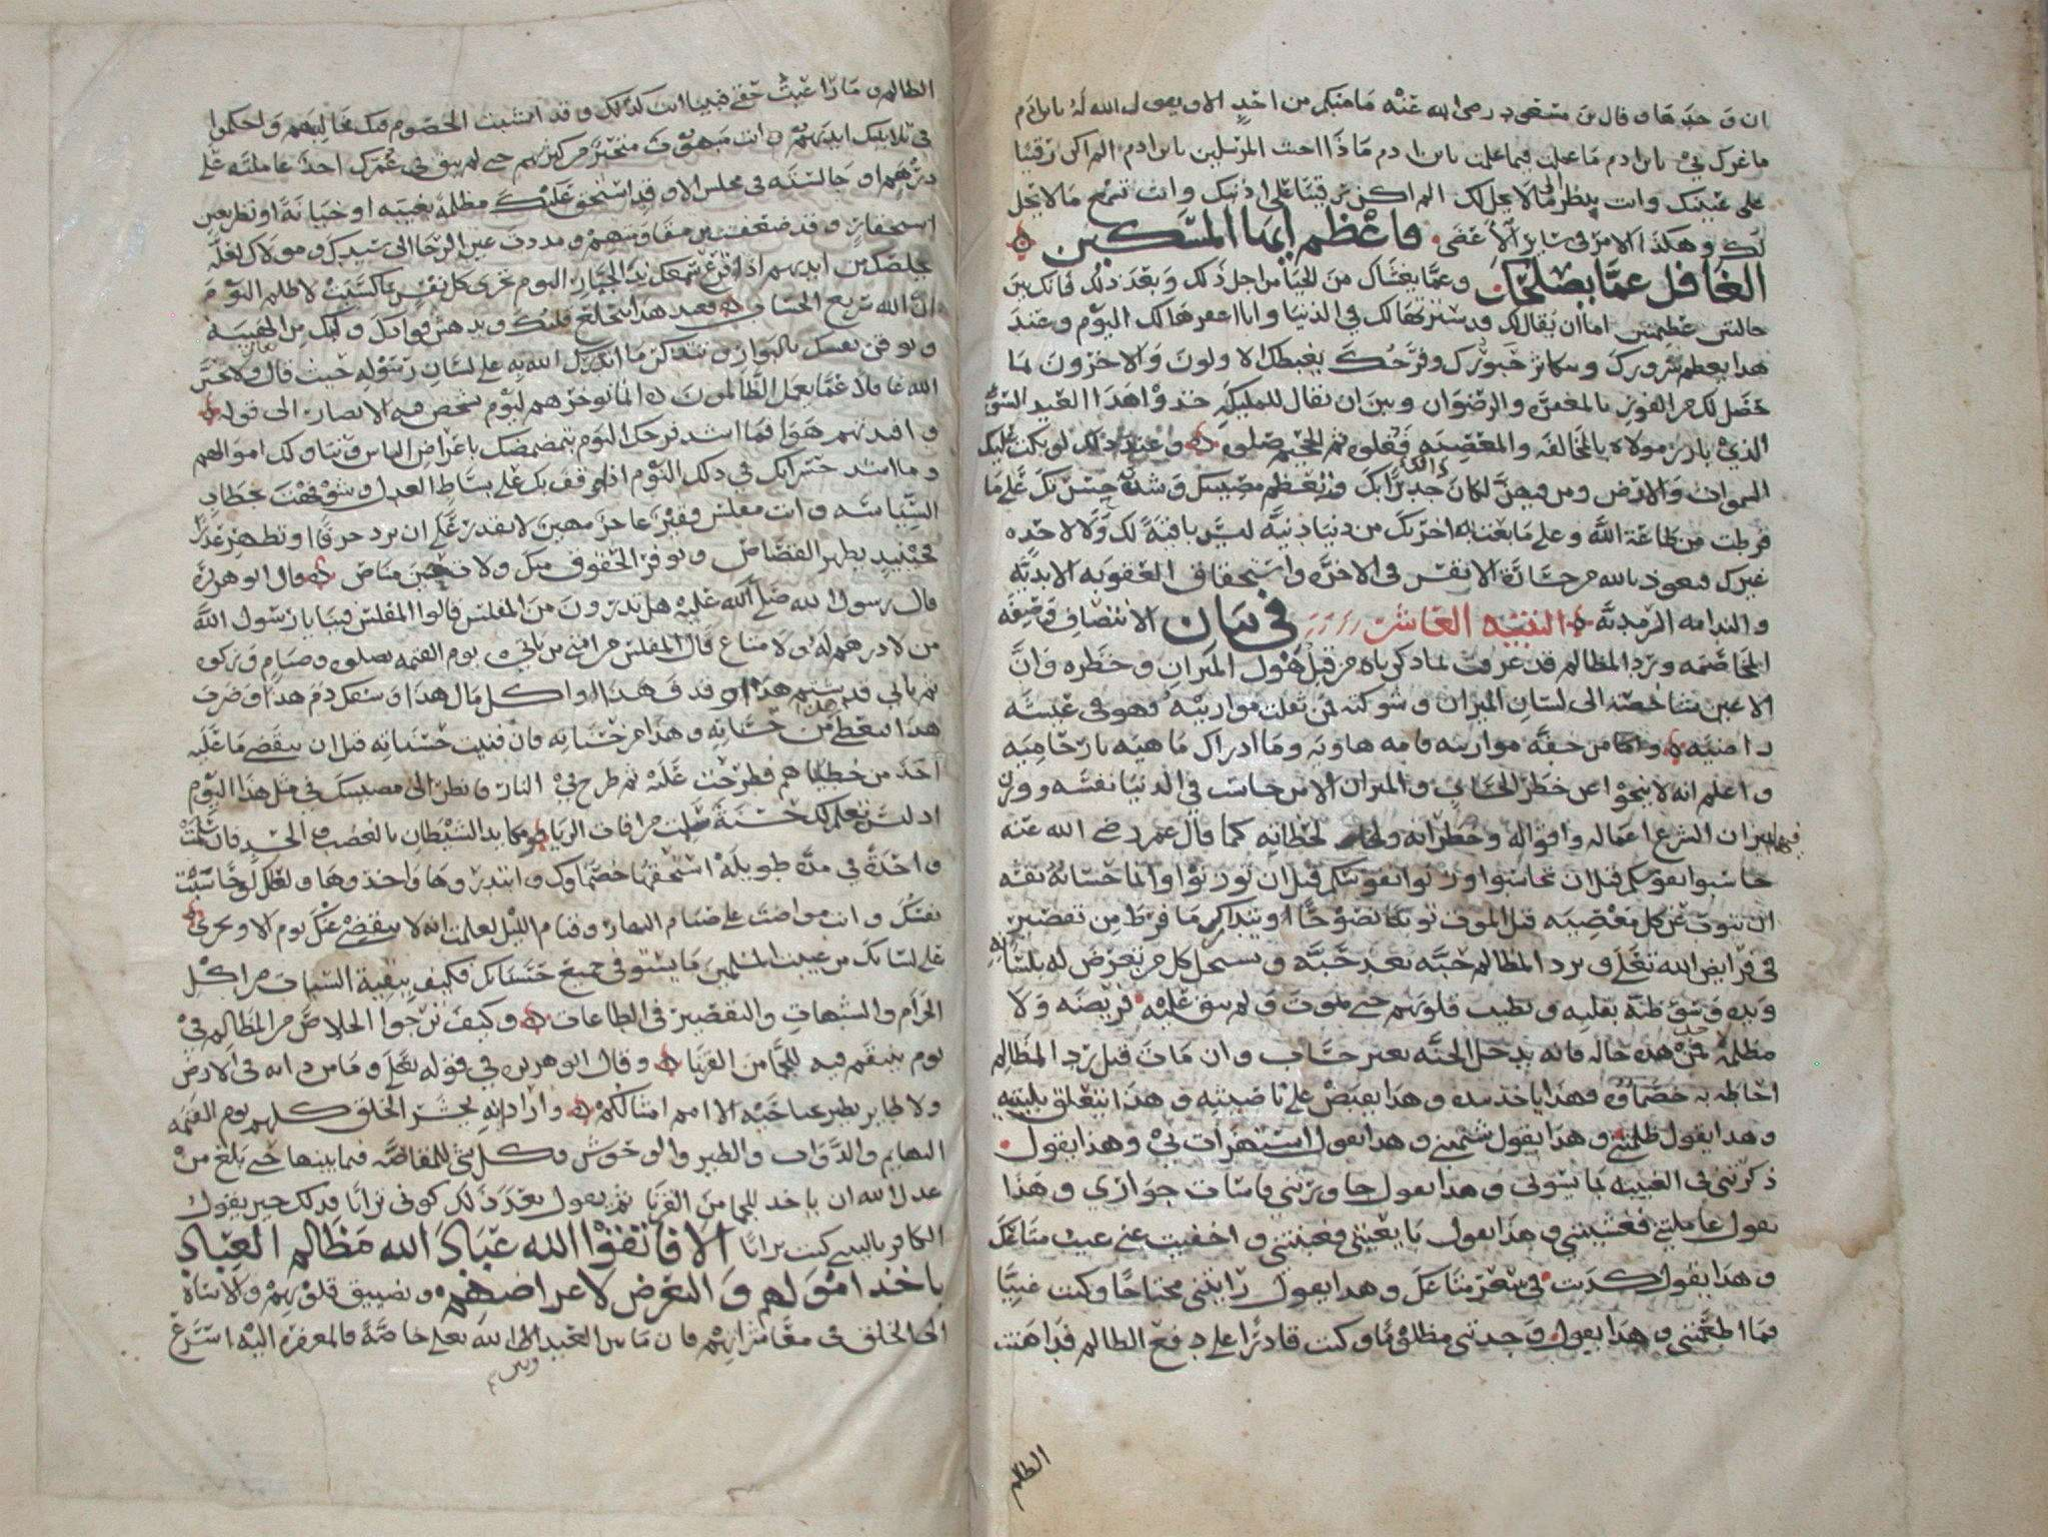 ان وجدها وقال بن مسعود رضي الله عنه ما منكم من احد الا ويقول الله له يابن ادم
ما غرك بي يابن ادم ما عملت فيما علمت يابن ادم ماذا اجبت المرسلين يابن ادم الم اكن رقيبا
على عينيك وانت ينظر الى ما لا يحل لك الم اكن رقيبا على اذنيك وانت تسمع ما لا يحل
لك وهكذا الامر في سائر الاعضى فاعظم ايها المسكين
الغافل عما يصلحك وعما يغشاك من الحيا من اجل ذلك وبعد ذلك فانك بين
حالتين عظيمتين اما ان يقال لك قد سترتها لك في الدنيا وانا اغفرها لك اليوم وعند
هذا يعظم سرورك وفرحك يغبطك الاولون والاخرون لما
حصل لك من الفوز بالمغفرة والرضوان وبين ان يقال للمليكة خذوا هذا العبد السوء
الذي بارز مولاه بالمخالفه والمعصيه فغلوه ثم الجحيم صلوه وعند ذلك لو بكت عليك
السموات والارض ومن فيهن لكان جديرا بك وتعظم مصيبتك وشدة حسرتك على ما
فرطت من طاعة الله وعلى ما بعت اخرتك من دنيا دنية ليست باقية لك ولا لاحد
غيرك فنعوذ بالله من خسارة الانفس في الاخرة واستحقاق العقوبه الابدية
والندامه السرمدية التنبيه العاشر في بيان الانتصاف وصيغه
المخاصمه ورد المظالم قد عرفت لما ذكرناه من قبل هول الميزان وخطره وان
الاعين شاخصه الى لسان الميزان فمن ثقلت موازينه فهو في عيشة
راضيه واما من خفه موازينه فامه هاويه وما ادراك ما هيه نار حاميه
واعلم انه لا ينجوا عن خطر الحساب والميزان الا من حاسب في الدنيا نفسه ووزن
فيها بميزان الشرع اعماله واقواله وخطراته ولحظاته كما قال عمر رضي الله عنه
حاسبوا نفوسكم قبل ان تحاسبوا وزنوا نفوسكم قبل ان توزنوا وانما حسابه نفسه
ان يتوب عن كل معصيه قبل الموت توبة نصوحا او يتدارك ما فرط من تقصير
في فرايض الله تعلى ويرد المظالم حبة بعد حبة ويستحل كل من تعرض له بلسانه
ويده وسوء ظنه بقلبه ويطيب قلوبهم حتى يموت ولم يبق عليه فريضه ولا
مظلمة فمن هذه حاله فانه يدخل الجنة بغير حساب وان مات قبل رد المظالم
احاطه به خصماوه فهذا ياخذ بيده وهذا يقبض على ناصيته وهذا يتعلق بلبته
وهذا يقول ظلمتني وهذا يقول شتمني وهذا يقول استهزات بي وهذا يقول
ذكرتني في الغيبه بما يسوني وهذا يقول جاورتني فاسات جواري وهذا
يقول عاملتني فغششتني وهذا يقول بايعتني فغبنتني واخفيت عني عيب متاعك
وهذا يقول كذبت في سعر متاعك وهذا يقول رايتني محتاجا وكنت غنيا
فما اطعمتني وهذا يقول وجدتني مظلوما وكنت قادرا على دفع الظالم فداهنت
الظالم
الظالم وما راعيت حقي فبينا انت كذلك وقد انشبت الخصوم فيك مخاليبهم واحكموا
في تلابيبك ايديهم وانت مبهوت متحير من كثرتهم حتى لم يبق في عمرك احد عاملته على
درهم او جالسته في مجلس الا وقد استحق عليك مظلمة بغيبه او خيانة او نظر بعين
استحقار وقد ضعفت من مقاومتهم ومددت عين الرجا الى سيدك ومولاك لعله
يخلصك من ايديهم اذا قرع سمعك ندا الجبار اليوم تجزى كل نفس بما كسبت لا ظلم اليوم
ان الله سريع الحساب فعند هذا ينخلع قلبك ويدهش فوادك من الهيبه
وتوقن نفسك بالبوار وتتذكر ما انذرك الله به على لسان رسوله حيث قال ولا تحسبن
الله غافلا عما يعمل الظالمون انما نوخرهم ليوم تشخص فيه الابصار الى قوله
وافيدتهم هوا فما اشد فرحك اليوم بتمضمضك باعراض الناس وتناولك اموالهم
وما اشد حسراتك في ذلك اليوم اذا وقف بك على بساط العدل وشوفهت بخطاب
السياسه وانت مفلس فقير عاجز مهين لا تقدر على ان ترد حقا او تظهر عذرا
فحينيذ يظهر القصاص وتوفر الحقوق منك ولات حين مناص وقال ابو هريرة
قال رسول الله صلى الله عليه هل تدرون من المفلس قالوا المفلس فينا يا رسول الله
من لا درهم له ولا متاع قال المفلس من امتي من ياتي يوم القيمه بصلوه وصيام وزكوه
ثم ياتي قد شتم هذا وقذف هذا واكل مال هذا وسفك دم هذا وضرب
هذا فيعطى هذا من حسناته وهذا من حسناته فان فنيت حسناته قبل ان ينقضي ما عليه
اخذ من خطاياهم فطرحت عليه ثم طرح في النار فانظر الى مصيبتك في مثل هذا اليوم
اذ ليس تسلم لك حسنة من افات الريا ومكايد الشيطان فان سلمت
واحدة في مدة طويلة استحقها خصماوك وابتدروها واخذوها ولعلك لو حاسبت
نفسك وانت مواضب على صيام النهار وقيام الليل لعلمت انه لا ينقضي عنك يوم الا ويجري
على لسانك من غيبت المسلمين ما يستوفي جميع حسناتك فكيف ببقية السيات من اكل
الحرام والشبهات والتقصير في الطاعات وكيف ترجوا الخلاص من المظالم في
يوم ينتقم فيه للجما من القرنا وقال ابو هريره في قوله تعلى وما من دابه في الارض
ولا طاير يطير بجناحيه الا امم امثالكم وارادانه يحشر الخلق كلهم يوم القيمه
البهايم والدواب والطير والوحوش وكل شي للمقاصه فيما بينها حتى يبلغ من
عدل الله ان ياخذ للجما من القرنا ثم يقول بعد ذلك كوني ترابا فذلك حين يقول
الكافر ياليتني كنت ترابا الا فاتقوا الله عباد الله مظالم العباد
باخذ اموالهم والتعرض لاعراضهم وتضييق قلوبهم والاساة
الى الخلق في معاشرتهم فان ما بين العبد الى الله تعلى خاصة فالمغفره اليه اسرع